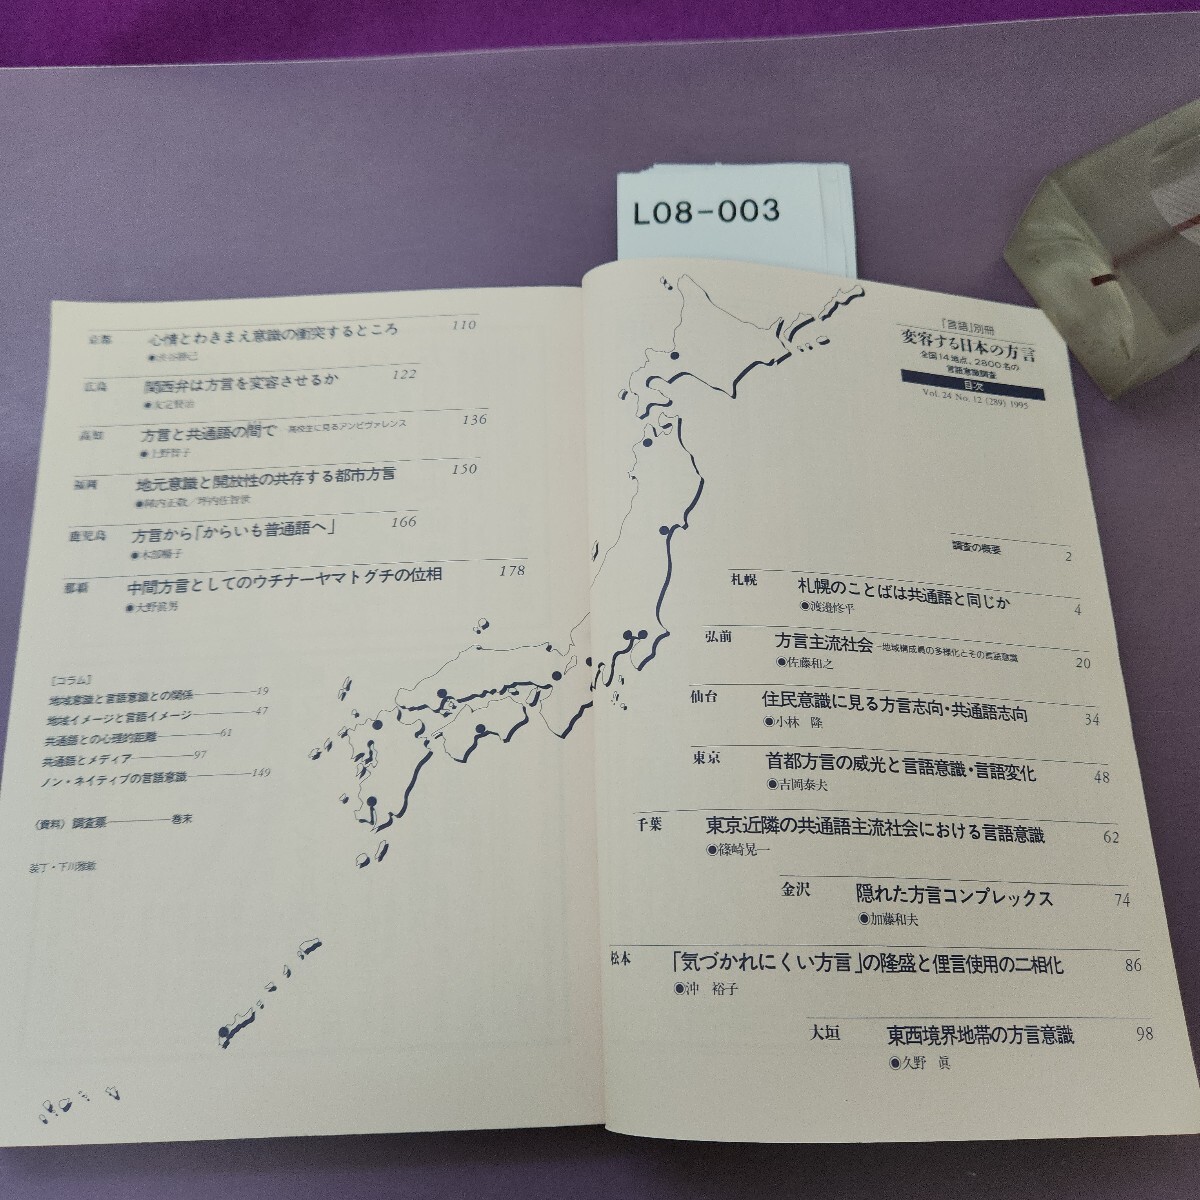 L08-003
「言語」別冊
変容する日本の方言
全国14地点、2800名の
言語意識調査
目次
Vol. 24 No. 12 (289) 1995
調査の概要 2
札幌 札幌のことばは共通語と同じか 4
◉渡邉修平
弘前 方言主流社会 −地域構成員の多様化とその言語意識 20
◉佐藤和之
仙台 住民意識に見る方言志向・共通語志向 34
◉小林 隆
東京 首都方言の威光と言語意識・言語変化 48
◉吉岡泰夫
千葉 東京近隣の共通語主流社会における言語意識 62
◉篠崎晃一
金沢 隠れた方言コンプレックス 74
◉加藤和夫
松本 「気づかれにくい方言」の隆盛と俚言使用の二相化 86
◉沖 裕子
大垣 東西境界地帯の方言意識 98
◉久野 眞
京都 心情とわきまえ意識の衝突するところ 110
◉渋谷勝己
広島 関西弁は方言を変容させるか 122
◉友定賢治
高知 方言と共通語の間で 高校生に見るアンビヴァレンス 136
◉上野智子
福岡 地元意識と開放性の共存する都市方言 150
◉陣内正敬／坪内佐智世
鹿児島 方言から「からいも普通語へ」 166
◉木部暢子
那覇 中間方言としてのウチナーヤマトグチの位相 178
◉大野眞男
［コラム］
地域意識と言語意識との関係 19
地域イメージと言語イメージ 47
共通語との心理的距離 61
共通語とメディア 97
ノン・ネイティブの言語意識 149
〈資料〉調査票 巻末
装丁・下川雅敏